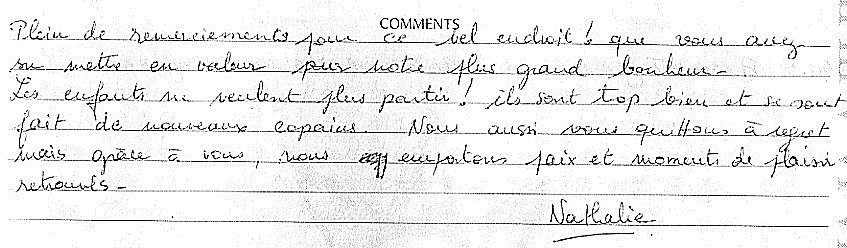 COMMENTS
Plein de remerciements pour ce bel endroit ! que vous avez
su mettre en valeur pour notre plus grand bonheur -
Les enfants ne veulent plus partir ! ils sont trop bien et se sont
fait de nouveaux copains. Nous aussi vous quittons à regret
mais grâce à vous, nous emportons paix et moments de plaisir
retrouvés -
Nathalie